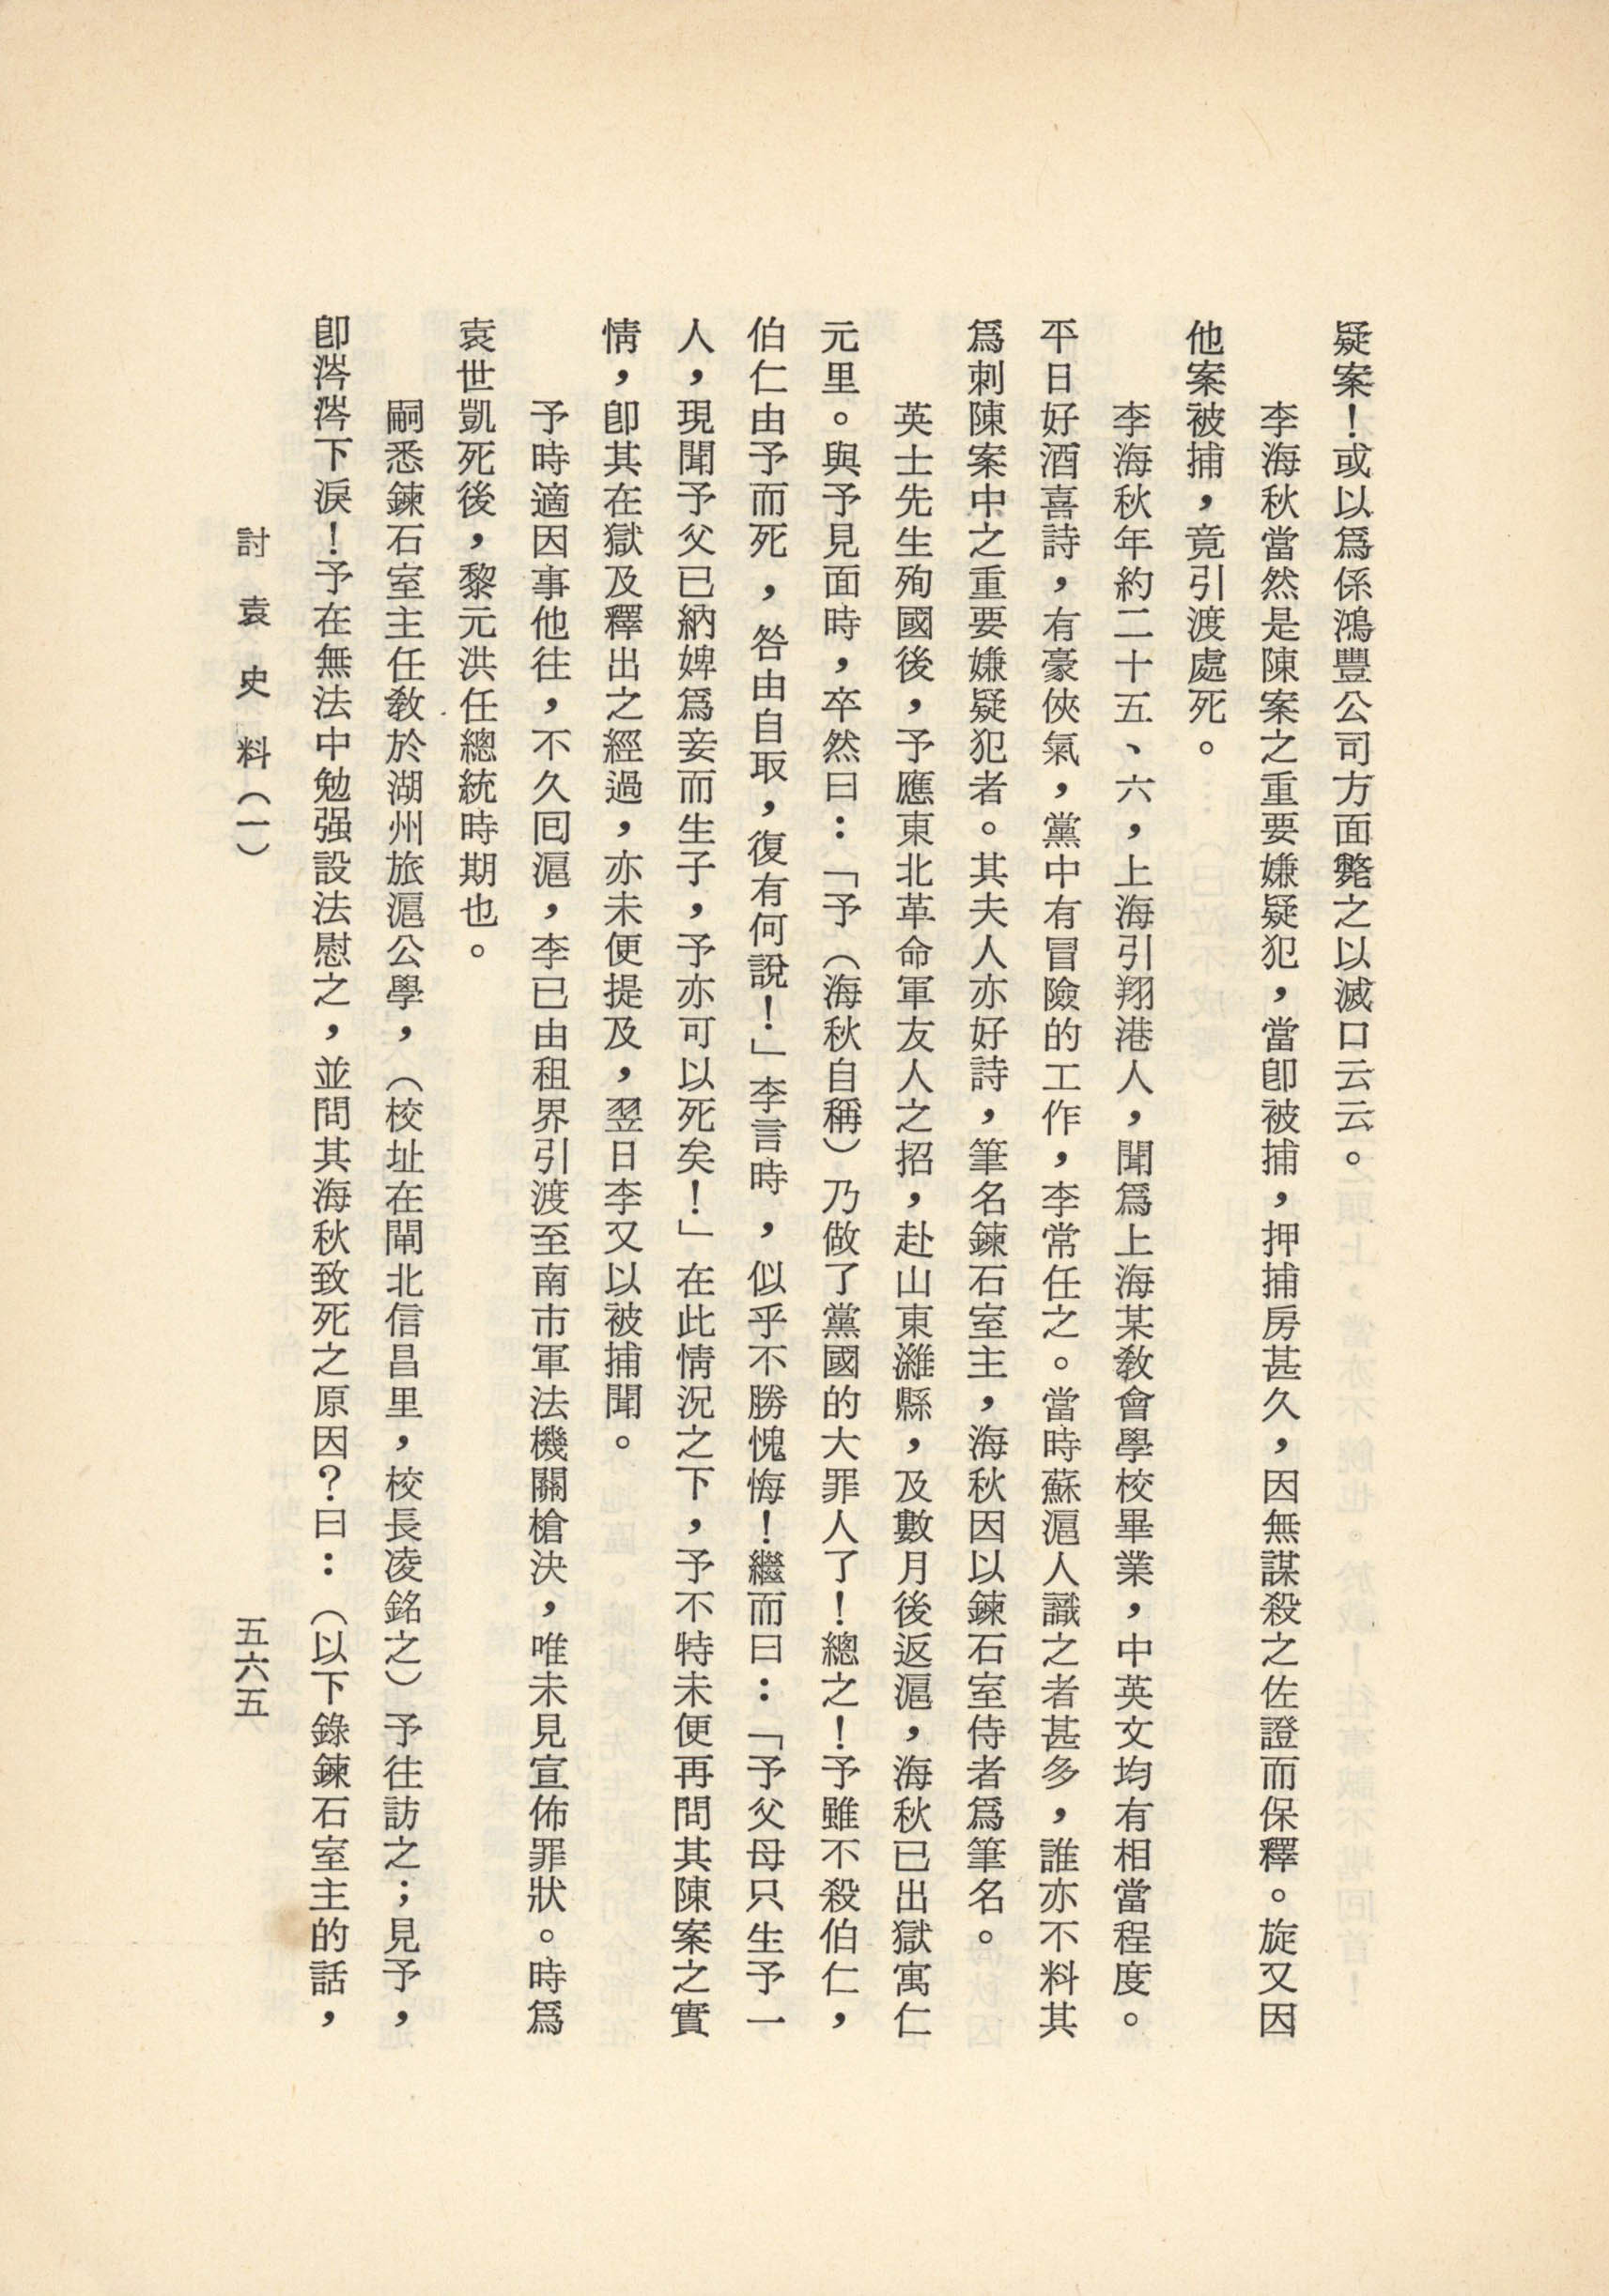 疑案！或以爲係鴻豐公司方面斃之以滅口云云。
李海秋當然是陳案之重要嫌疑犯，當卽被捕，押捕房甚久，因無謀殺之佐證而保釋。旋又因
他案被捕，竟引渡處死。
李海秋年約二十五、六，上海引翔港人，聞爲上海某教會學校畢業，中英文均有相當程度。
平日好酒喜詩，有豪俠氣，黨中有冒險的工作，李常任之。當時蘇滬人識之者甚多，誰亦不料其
爲刺陳案中之重要嫌疑犯者。其夫人亦好詩，筆名鍊石室主，海秋因以鍊石室侍者爲筆名。
英士先生殉國後，予應東北革命軍友人之招，赴山東濰縣，及數月後返滬，海秋已出獄寓仁
元里。與予見面時，卒然曰：「予（海秋自稱）乃做了黨國的大罪人了！總之！予雖不殺伯仁，
伯仁由予而死，咎由自取，復有何說！」李言時，似乎不勝愧悔！繼而曰：「予父母只生予一
人，現聞予父已納婢爲妾而生子，予亦可以死矣！」在此情況之下，予不特未便再問其陳案之實
情，卽其在獄及釋出之經過，亦未便提及，翌日李又以被捕聞。
予時適因事他往，不久囘滬，李已由租界引渡至南市軍法機關槍決，唯未見宣佈罪狀。時爲
袁世凱死後，黎元洪任總統時期也。
嗣悉鍊石室主任教於湖州旅滬公學，（校址在閘北信昌里，校長凌銘之）予往訪之；見予，
卽涔涔下淚！予在無法中勉强設法慰之，並問其海秋致死之原因？曰：（以下錄鍊石室主的話，
討袁史料（一）
五六五